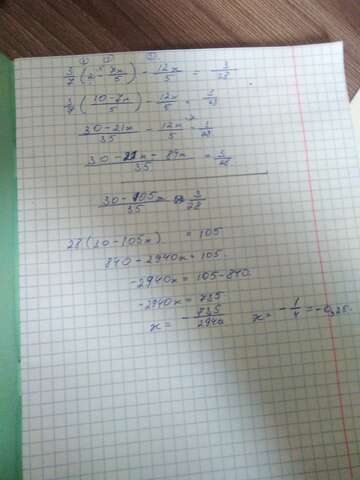 ① ② ③
3/7 (2 - 7x/5) - 12x/5 = 3/28
3/7 (10-7x/5) - 12x/5 = 3/28
30-21x/35 - 12x/5 = 3/28
30-21x-84x/35 = 3/28
30-105x/35 = 3/28
28(30-105x) = 105
840-2940x = 105.
-2940x = 105-840.
-2940x = 735
x = - 735/2940 x = - 1/4 = -0,25.